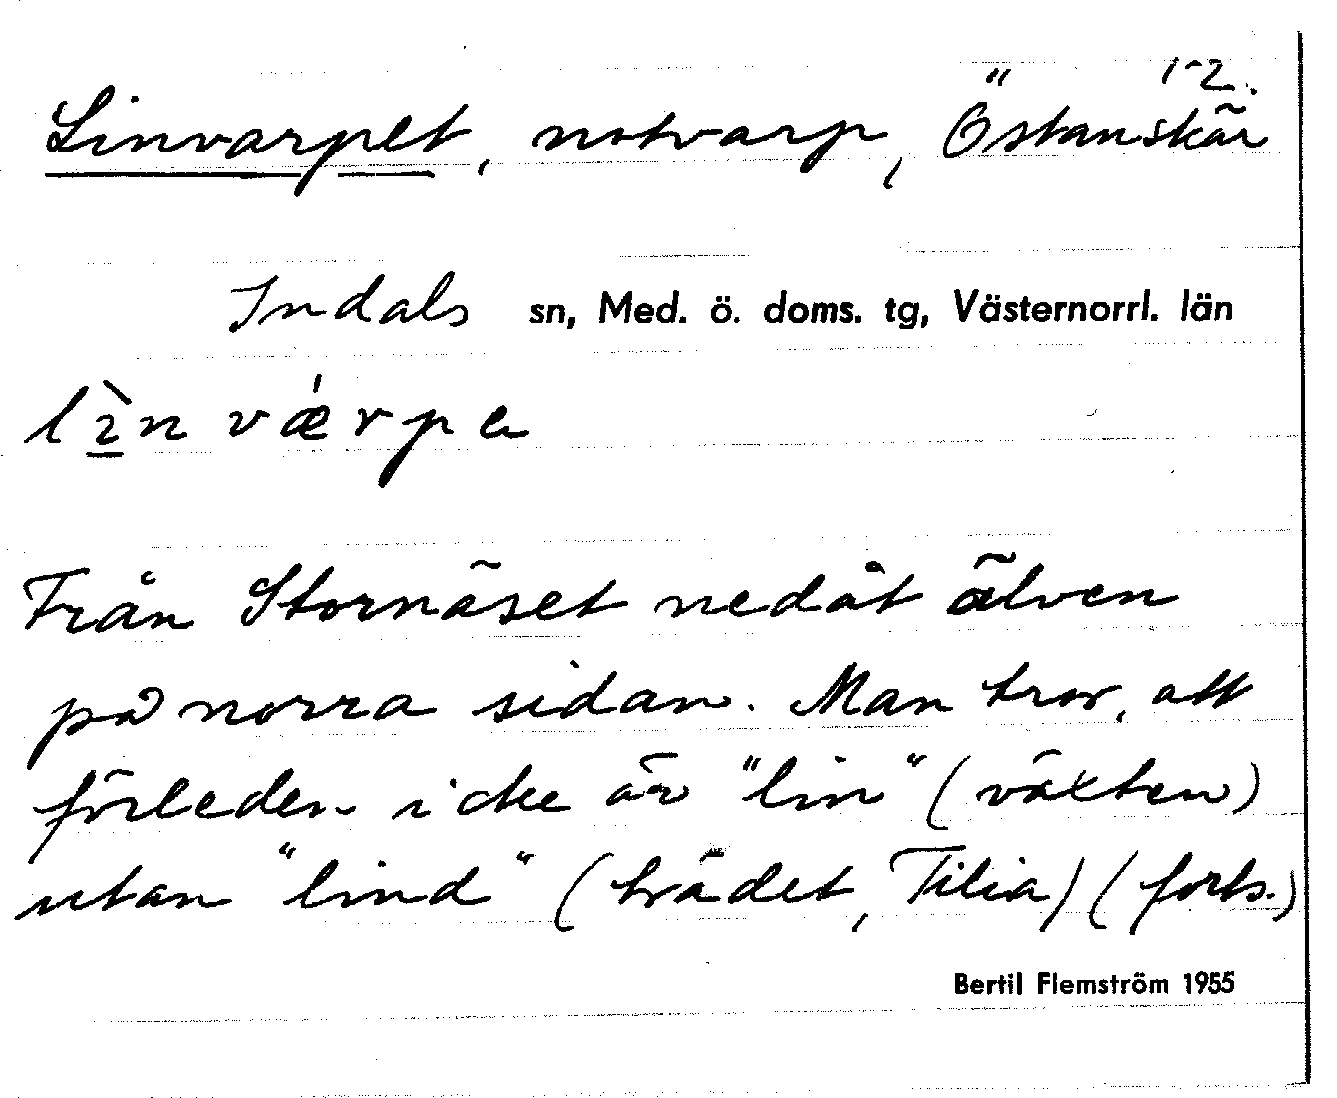 1-2.
Linvarpet, notvarp, Östanskär
Indals sn, Med. ö. doms. tg, Västernorrl. län
lìn værpa
Från Stornäset nedåt älven
på norra sidan. Man tror, att
förleden icke är "lin" (växten)
utan "lind" (trädet, Tilia) (forts.)
Bertil Flemström 1955